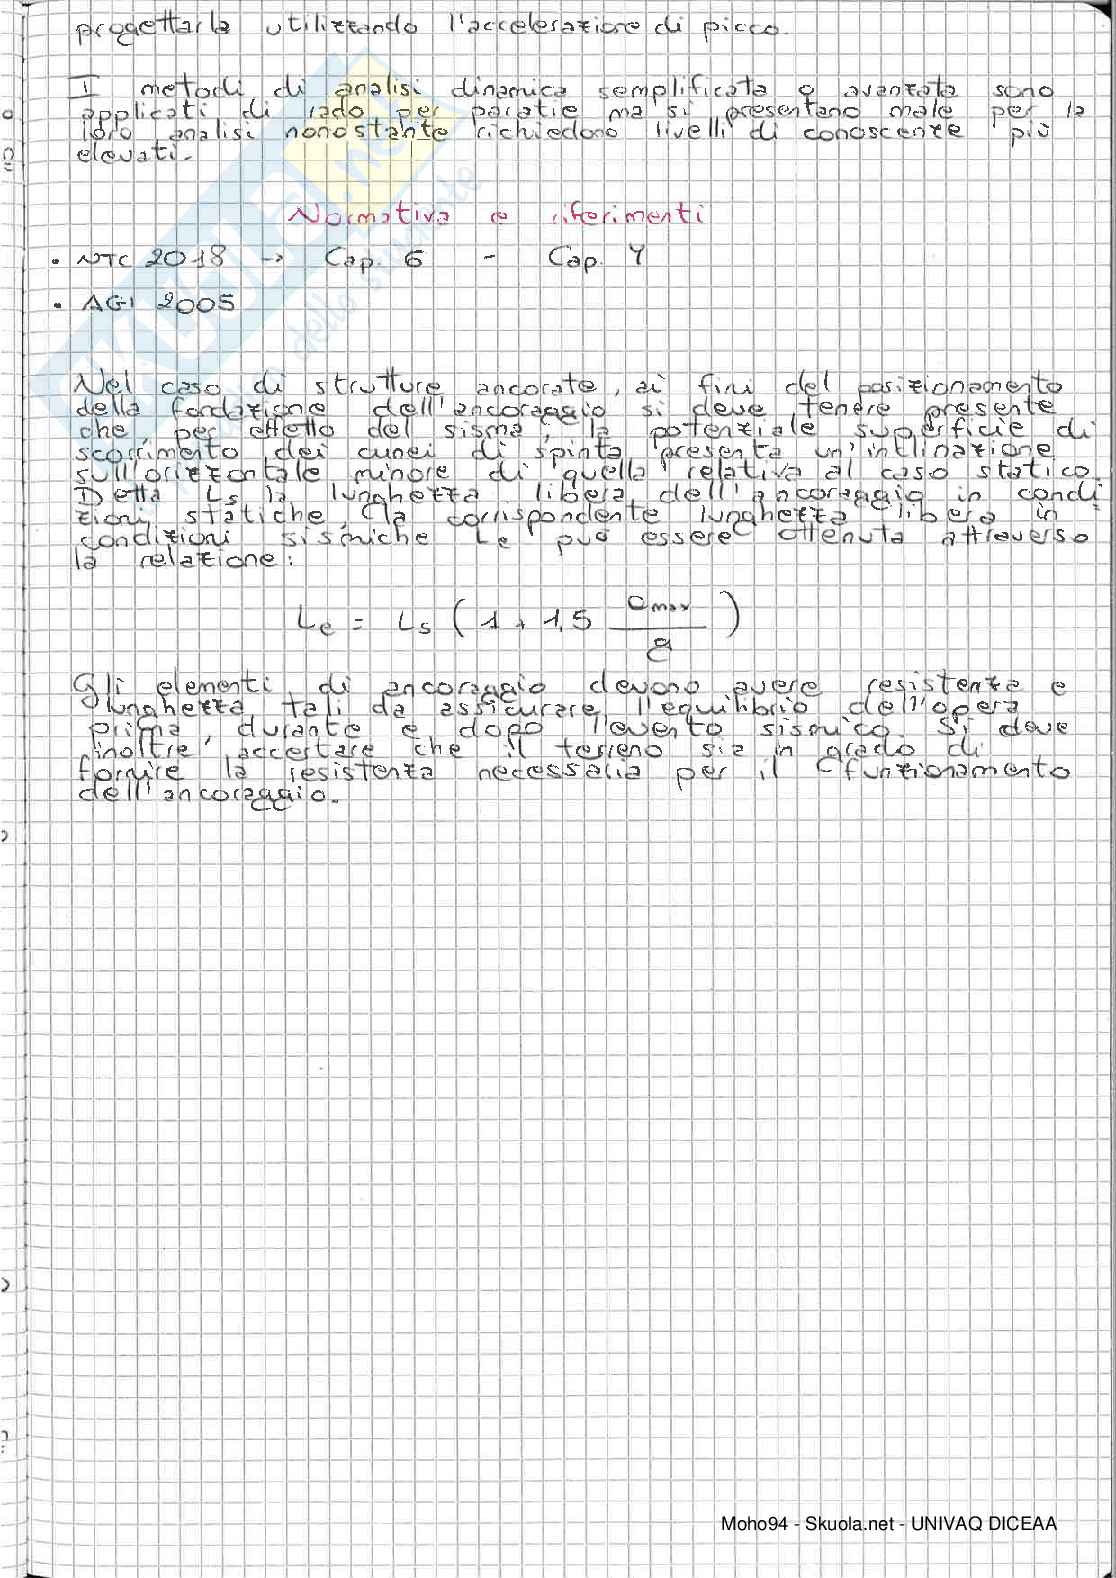 progettarla utilizzando l'accelerazione di picco.
I metodi di analisi dinamica semplificata o avanzata sono
applicati di rado per paratie ma si presentano male per la
loro analisi nonostante richiedono livelli di conoscenze più
elevati.
Normativa e riferimenti
• NTC 2018 → Cap. 6 - Cap. 7
• AGI 2005
Nel caso di strutture ancorate, ai fini del posizionamento
della fondazione dell'ancoraggio si deve tenere presente
che, per effetto del sisma, la potenziale superficie di
scorrimento dei cunei di spinta presenta un'inclinazione
sull'orizzontale minore di quella relativa al caso statico.
Detta Ls la lunghezza libera dell'ancoraggio in condi
zioni statiche, la corrispondente lunghezza libera in
condizioni sismiche Le può essere ottenuta attraverso
la relazione:
Le = Ls (1 + 1,5 amax / g)
Gli elementi di ancoraggio devono avere resistenza e
lunghezza tali da assicurare l'equilibrio dell'opera
prima, durante e dopo l'evento sismico. Si deve
inoltre accertare che il terreno sia in grado di
fornire la resistenza necessaria per il funzionamento
dell'ancoraggio.
Moho94 - Skuola.net - UNIVAQ DICEAA